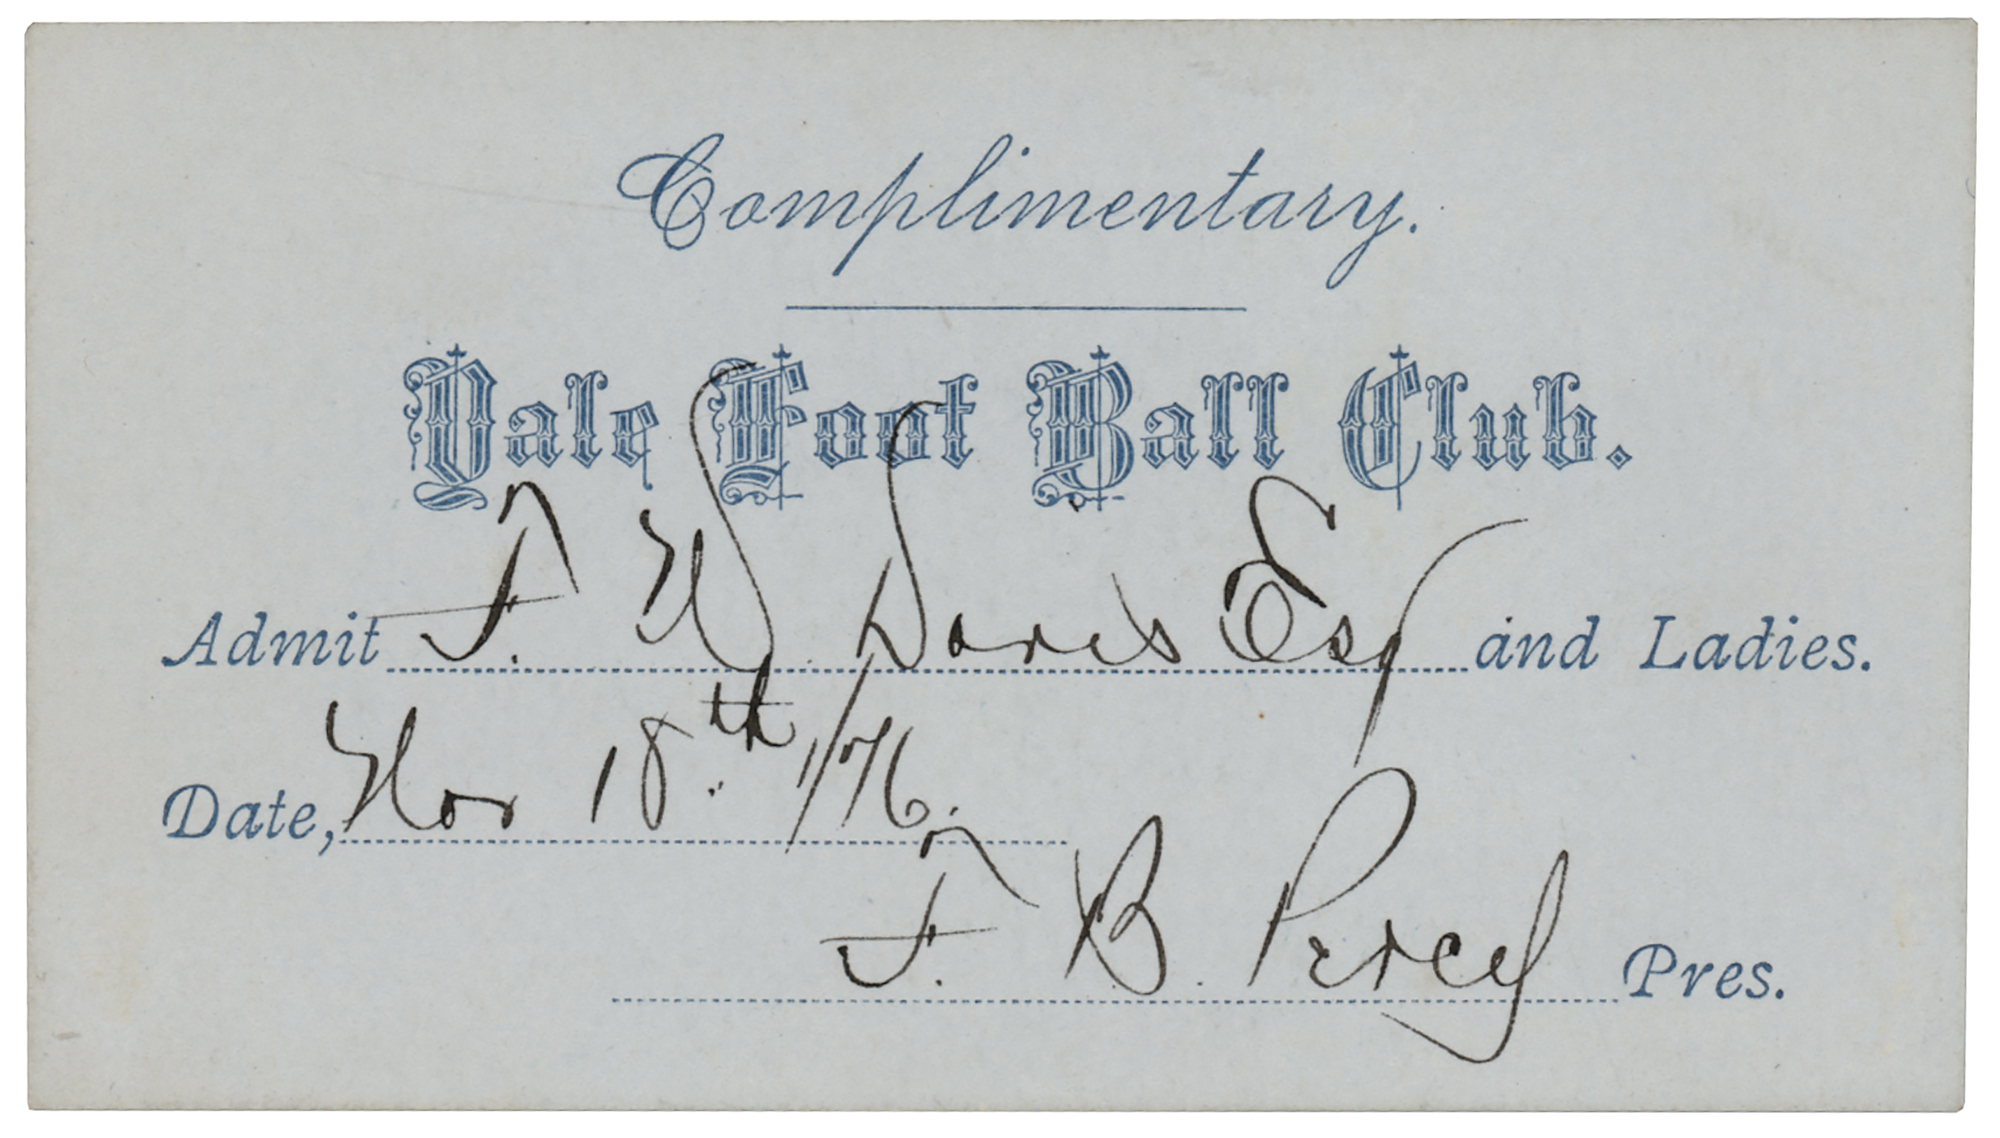 Complimentary.
Yale Foot Ball Club.
Admit F. W. Davis Esq and Ladies.
Date, Nov 18th /76.
F. B. Percy Pres.